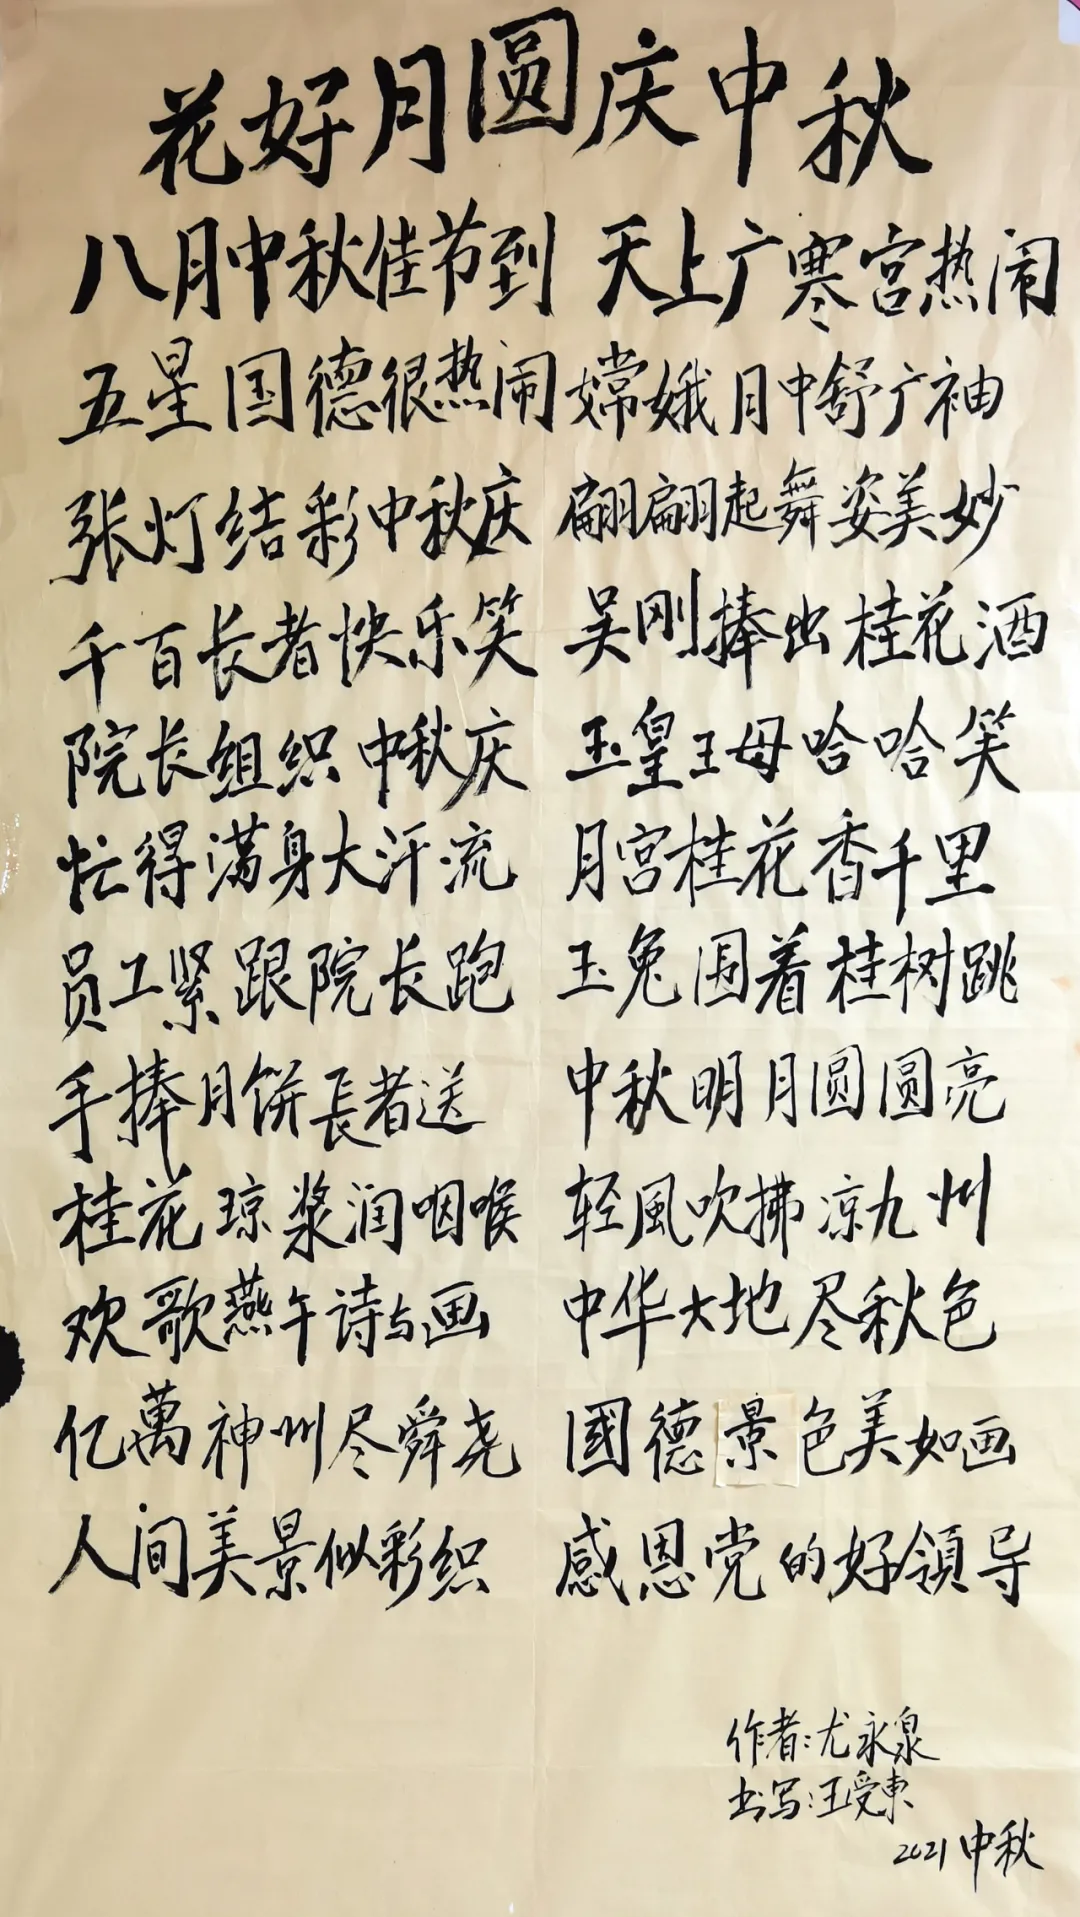 花好月圆庆中秋
八月中秋佳节到 天上广寒宫热闹
五星国德很热闹 嫦娥月中舒广袖
张灯结彩中秋庆 翩翩起舞姿美妙
千百长者快乐笑 吴刚捧出桂花酒
院长组织中秋庆 玉皇王母哈哈笑
忙得满身大汗流 月宫桂花香千里
员工紧跟院长跑 玉兔围着桂树跳
手捧月饼長者送 中秋明月圆圆亮
桂花琼浆润咽喉 轻風吹拂凉九州
欢歌燕午诗与画 中华大地尽秋色
亿萬神州尽舜尧 國德景色美如画
人间美景似彩织 感恩党的好領导
作者:尤永泉
书写:王受東
2021中秋